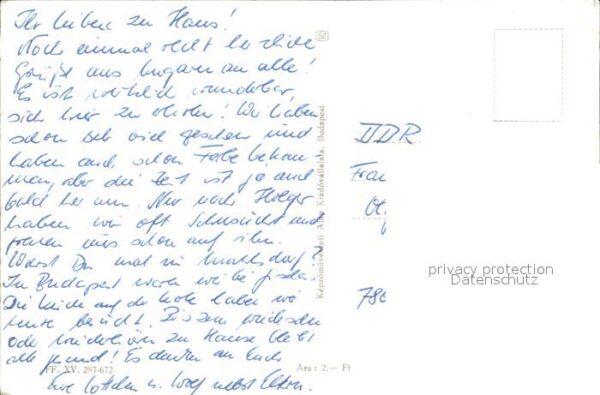 Ihr Lieben zu Haus!
Noch einmal recht herzliche
Grüße aus Ungarn an alle!
Es ist wirklich wunderbar,
sich hier zu erholen! Wir haben
schon sehr viel gesehen und
haben auch schon Farbe bekom
men, aber die Zeit ist ja auch
bald herum. Nur nach Holger
haben wir oft Sehnsucht und
freuen uns schon auf ihn.
Warst Du mal in
In Budapest waren wir bei
Die Kirche auf der haben wir
heute besucht. Bis zum Wiedersehen
oder Wiederhören zu Hause bleibt
alle gesund! Es denken an Euch
Eure u. Wolf nebst Eltern.
FF. XV. 287-672
Ára: 2.— Ft
Képzőművészeti Alap Kiadóvállalata, Budapest
DDR
Frau
privacy protection
Datenschutz